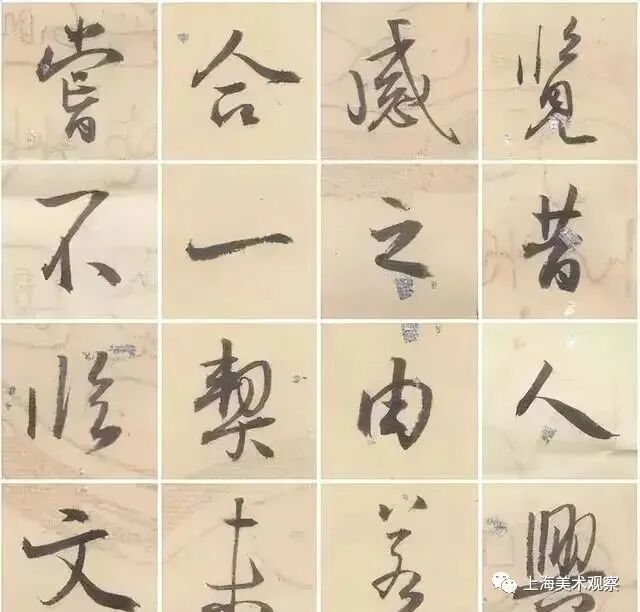 覽昔人興
感之由若
合一契未
嘗不臨文
上海美术观察